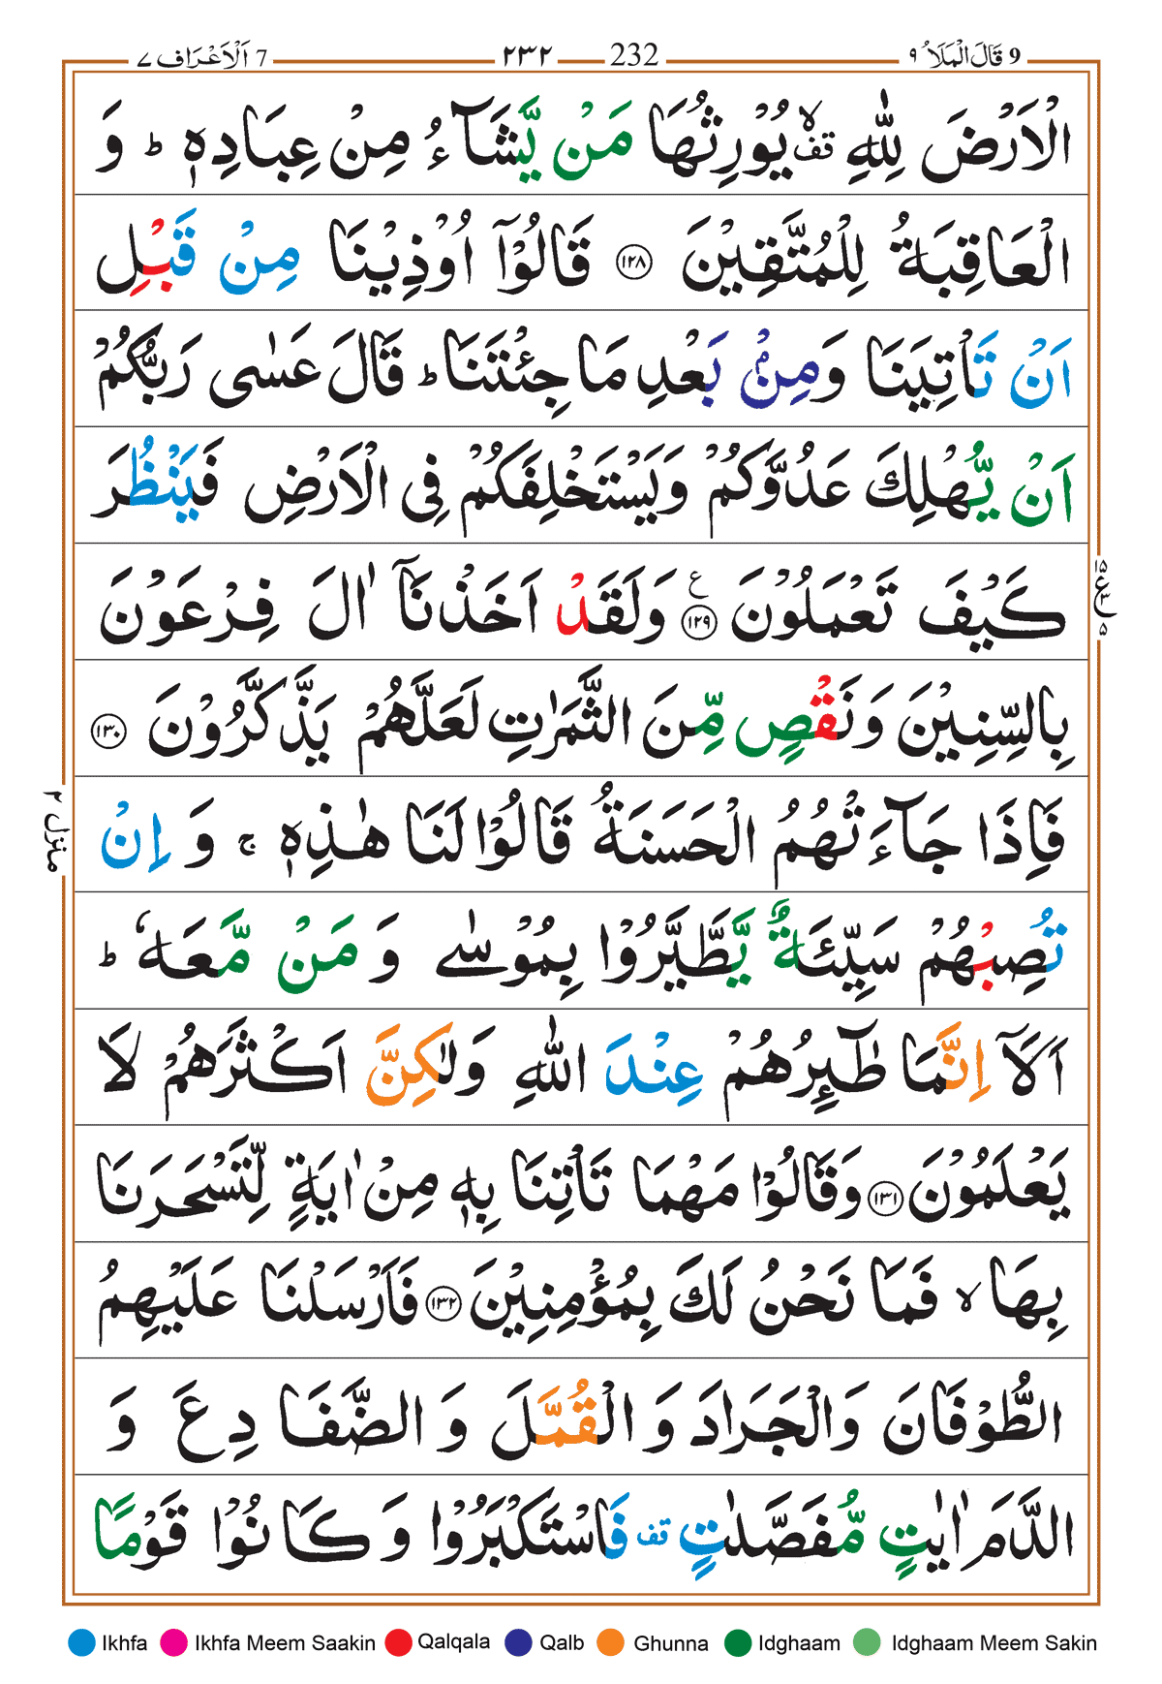 7 اَلْاَعْرَاف ٧ ٢٣٢ 232 9 قَالَ الْمَلَاُ ٩
الْاَرْضَ لِلّٰهِ ۙ تف يُوْرِثُهَا مَنْ يَّشَآءُ مِنْ عِبَادِهٖ ؕ وَ
الْعَاقِبَةُ لِلْمُتَّقِيْنَ ١٢٨ قَالُوْٓا اُوْذِيْنَا مِنْ قَبْلِ
اَنْ تَاْتِيَنَا وَمِنْۢ بَعْدِ مَا جِئْتَنَا ؕ قَالَ عَسٰى رَبُّكُمْ
اَنْ يُّهْلِكَ عَدُوَّكُمْ وَيَسْتَخْلِفَكُمْ فِى الْاَرْضِ فَيَنْظُرَ
كَيْفَ تَعْمَلُوْنَ ١٢٩ ع وَلَقَدْ اَخَذْنَآ اٰلَ فِرْعَوْنَ
١٥ ع ٣ ٥
بِالسِّنِيْنَ وَنَقْصٍ مِّنَ الثَّمَرٰتِ لَعَلَّهُمْ يَذَّكَّرُوْنَ ١٣٠
فَاِذَا جَآءَتْهُمُ الْحَسَنَةُ قَالُوْا لَنَا هٰذِهٖ ۚ وَ اِنْ
منزل ٢
تُصِبْهُمْ سَيِّئَةٌ يَّطَّيَّرُوْا بِمُوْسٰى وَ مَنْ مَّعَهٗ ؕ
اَلَآ اِنَّمَا طٰٓئِرُهُمْ عِنْدَ اللّٰهِ وَلٰكِنَّ اَكْثَرَهُمْ لَا
يَعْلَمُوْنَ ١٣١ وَقَالُوْا مَهْمَا تَاْتِنَا بِهٖ مِنْ اٰيَةٍ لِّتَسْحَرَنَا
بِهَا ۙ فَمَا نَحْنُ لَكَ بِمُؤْمِنِيْنَ ١٣٢ فَاَرْسَلْنَا عَلَيْهِمُ
الطُّوْفَانَ وَالْجَرَادَ وَ الْقُمَّلَ وَ الضَّفَادِعَ وَ
الدَّمَ اٰيٰتٍ مُّفَصَّلٰتٍ تف فَاسْتَكْبَرُوْا وَ كَانُوْا قَوْمًا
Ikhfa Ikhfa Meem Saakin Qalqala Qalb Ghunna Idghaam Idghaam Meem Sakin